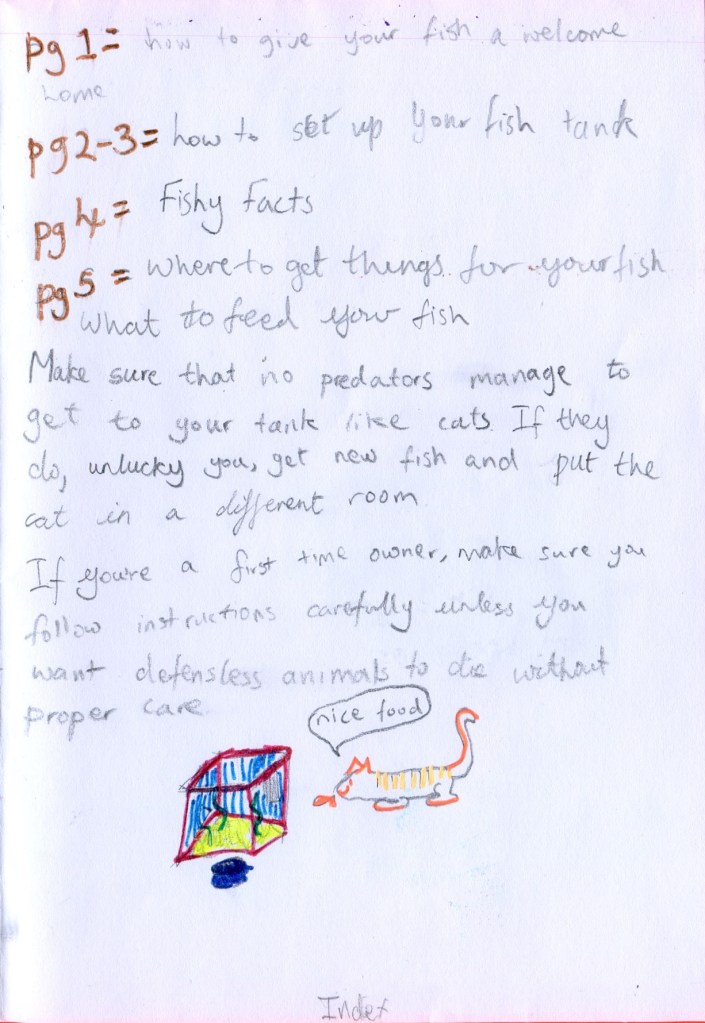 pg 1 = how to give your fish a welcome
home
pg 2-3 = how to set up your fish tank
pg 4 = Fishy Facts
pg 5 = where to get things for your fish
what to feed your fish
Make sure that no predators manage to
get to your tank like cats. If they
do, unlucky you, get new fish and put the
cat in a different room
If you're a first time owner, make sure you
follow instructions carefully unless you
want defensless animals to die without
proper care
nice food
Index